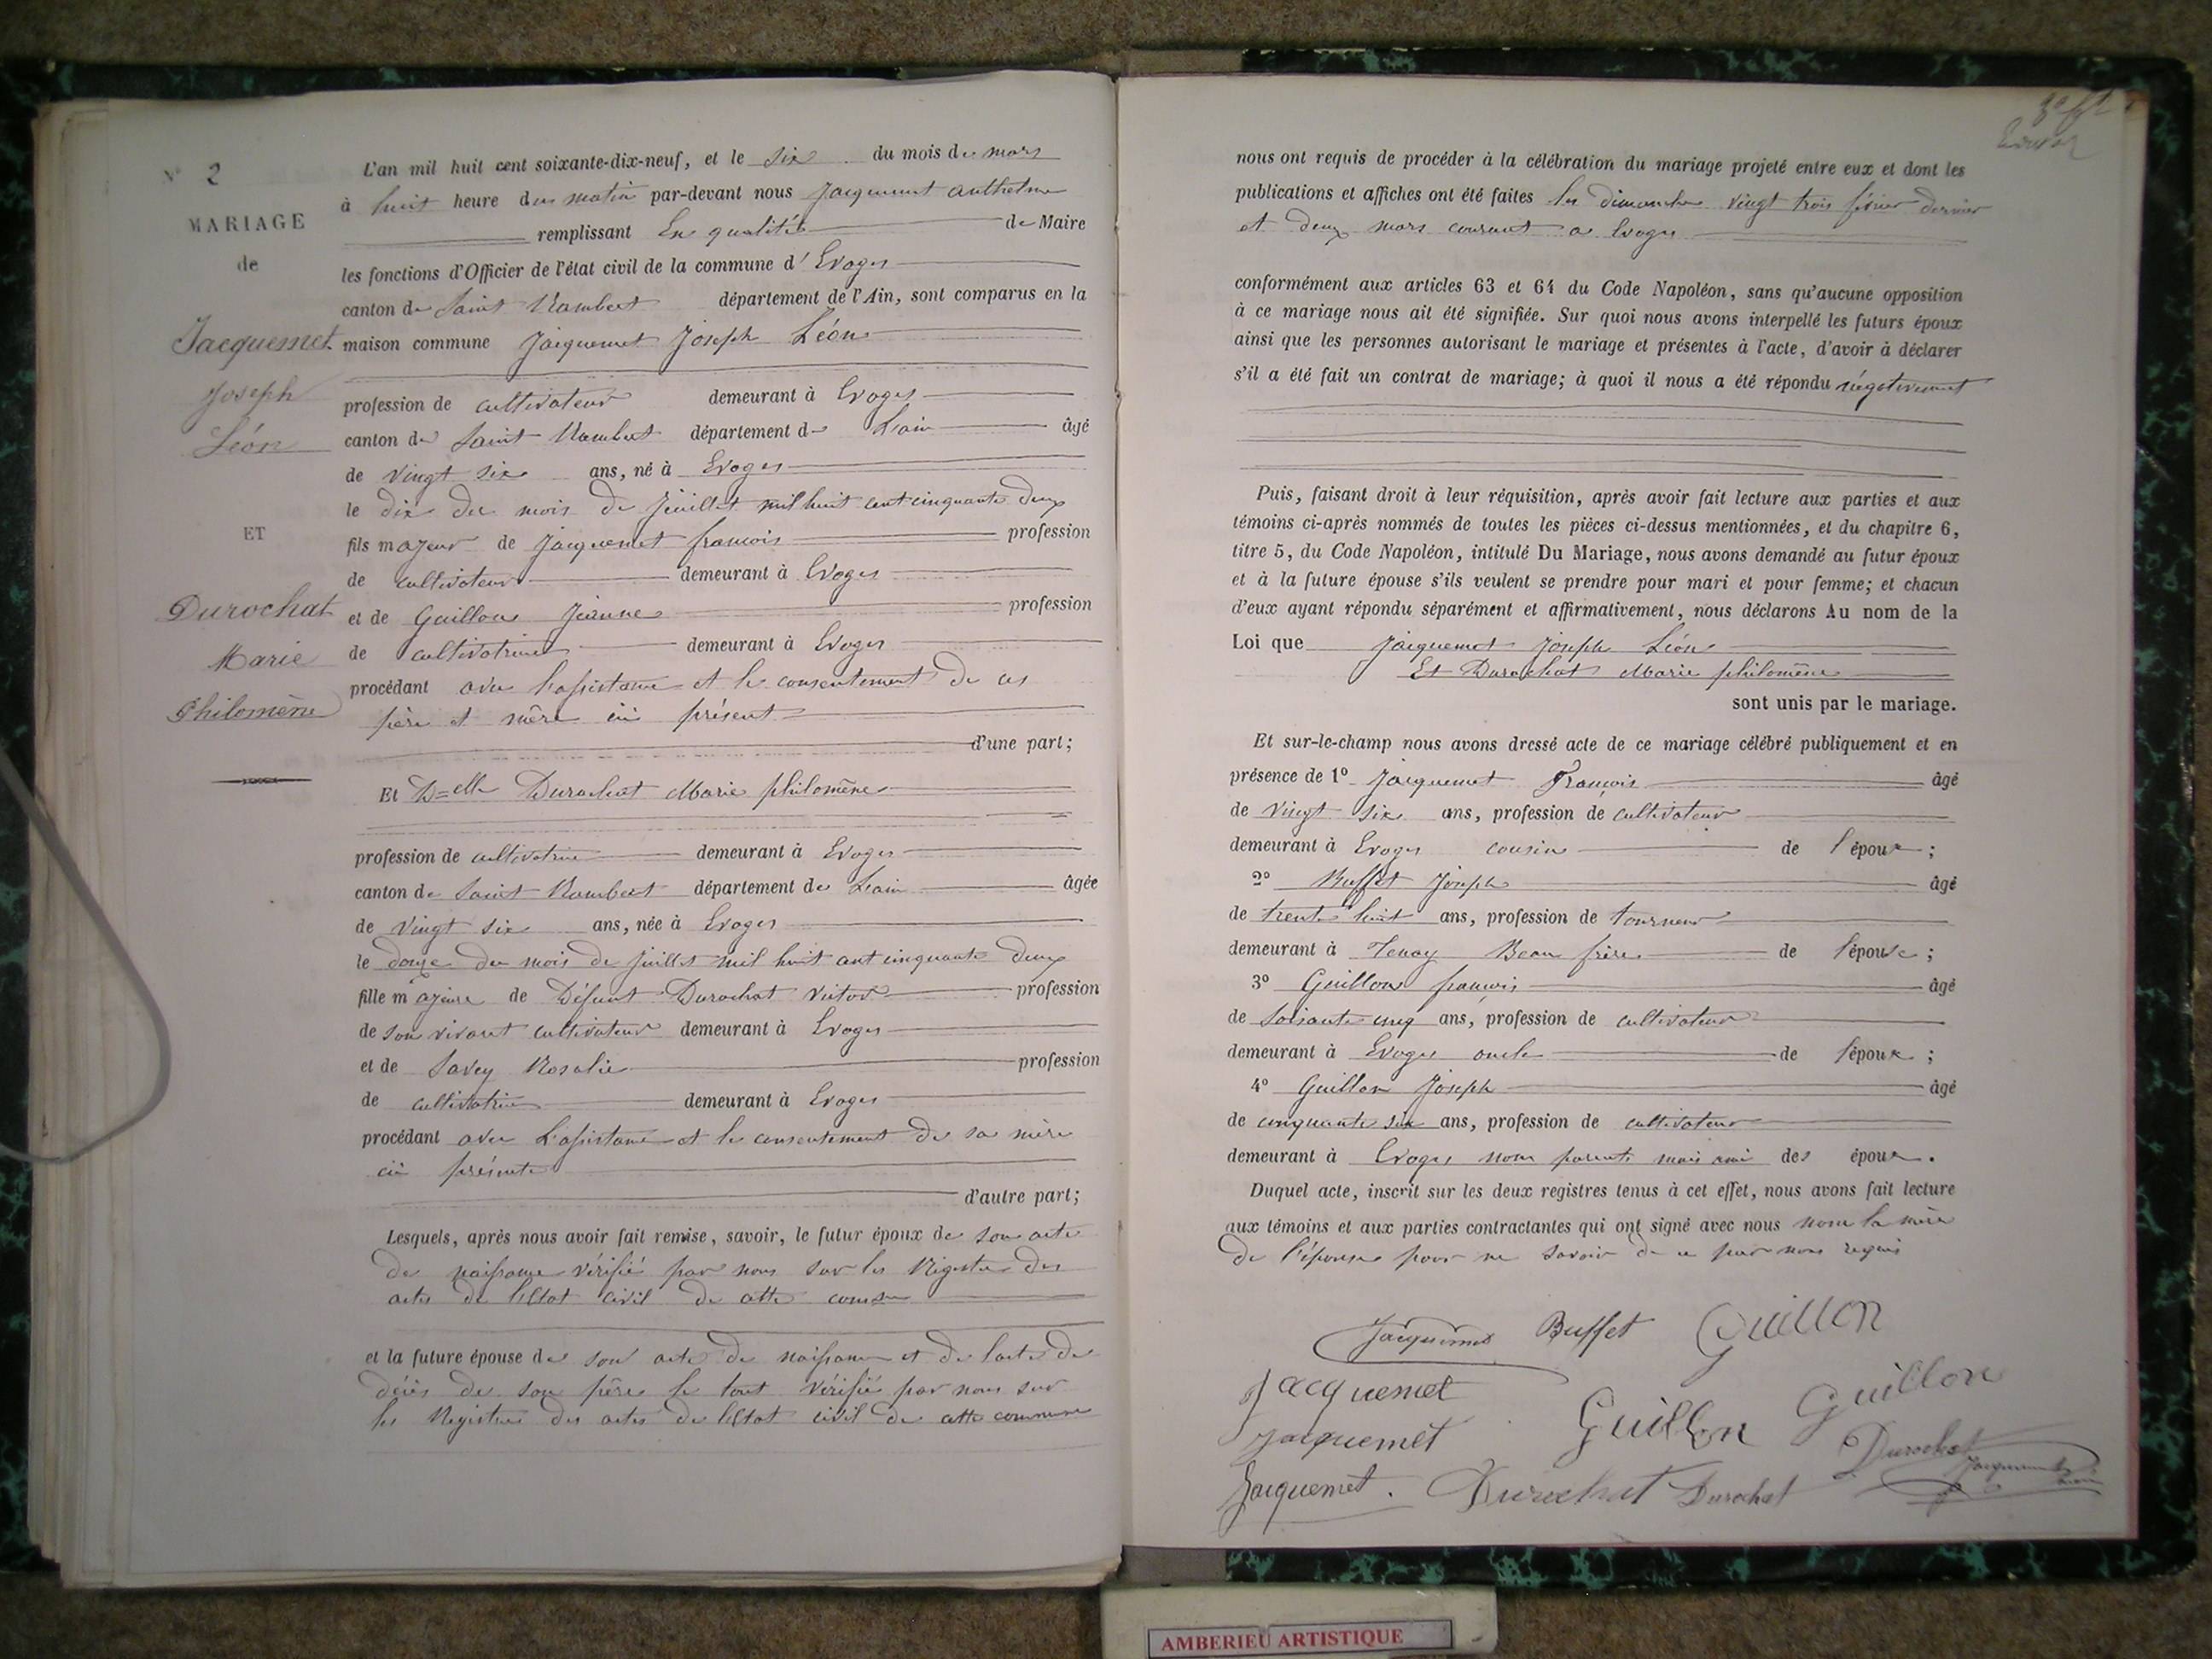 N° 2
MARIAGE
de
Jacquemet
Joseph
Léon
ET
Durochat
Marie
Philomène
L'an mil huit cent soixante-dix-neuf, et le six du mois de mars
à huit heure du matin par-devant nous Jacquemet Anthelme
remplissant En qualité de Maire
les fonctions d'Officier de l'état civil de la commune d' Evoges
canton de Saint Rambert département de l'Ain, sont comparus en la
maison commune Jacquemet Joseph Léon
profession de cultivateur demeurant à Evoges
canton de Saint Rambert département de Lain âgé
de vingt six ans, né à Evoges
le dix du mois de Juillet mil huit cent cinquante deux
fils majeur de Jacquemet francois profession
de cultivateur demeurant à Evoges
et de Guillon Jeanne profession
de cultivatrice demeurant à Evoges
procédant avec l'assistance et le consentement de ces
père et mère ici présent
d'une part;
Et D=elle Durochat Marie philomène
profession de cultivatrice demeurant à Evoges
canton de Saint Rambert département de Lain âgée
de vingt six ans, née à Evoges
le douze du mois de juillet mil huit cent cinquante deux
fille majeure de Défunt Durochat Victor profession
de son vivant cultivateur demeurant à Evoges
et de Savey Rosalie profession
de cultivatrice demeurant à Evoges
procédant avec L'assistance et le consentement de sa mère
ici présente
d'autre part;
Lesquels, après nous avoir fait remise, savoir, le futur époux de son acte
de naissance vérifié par nous sur les Registres des
actes de l'Etat civil de cette comune
et la future épouse de son acte de naissance et de l'acte de
décès de son père le tout vérifié par nous sur
les Registres des actes de l'Etat civil de cette commune
nous ont requis de procéder à la célébration du mariage projeté entre eux et dont les
publications et affiches ont été faites les dimanches vingt trois février dernier
et deux mars courant a Evoges
conformément aux articles 63 et 64 du Code Napoléon, sans qu'aucune opposition
à ce mariage nous ait été signifiée. Sur quoi nous avons interpellé les futurs époux
ainsi que les personnes autorisant le mariage et présentes à l'acte, d'avoir à déclarer
s'il a été fait un contrat de mariage; à quoi il nous a été répondu négativement
Puis, faisant droit à leur réquisition, après avoir fait lecture aux parties et aux
témoins ci-après nommés de toutes les pièces ci-dessus mentionnées, et du chapitre 6,
titre 5, du Code Napoléon, intitulé Du Mariage, nous avons demandé au futur époux
et à la future épouse s'ils veulent se prendre pour mari et pour femme; et chacun
d'eux ayant répondu séparément et affirmativement, nous déclarons Au nom de la
Loi que Jacquemet Joseph Léon
Et Durochat Marie philomène
sont unis par le mariage.
Et sur-le-champ nous avons dressé acte de ce mariage célébré publiquement et en
présence de 1° Jacquemet François âgé
de vingt six ans, profession de cultivateur
demeurant à Evoges cousin de l'époux;
2° Buffet Joseph âgé
de trente huit ans, profession de tourneur
demeurant à Tenay Beau frère de l'épouse;
3° Guillon francois âgé
de soixante cinq ans, profession de cultivateur
demeurant à Evoges oncle de l'époux;
4° Guillon Joseph âgé
de cinquante six ans, profession de cultivateur
demeurant à Evoges non parents mais ami des époux.
Duquel acte, inscrit sur les deux registres tenus à cet effet, nous avons fait lecture
aux témoins et aux parties contractantes qui ont signé avec nous non la mère
de l'épouse pour ne savoir de ce par nous requis
Jacquemet Buffet Guillon
Jacquemet Guillon Guillon
Jacquemet Durochat
Jacquemet. Durochat Durochat Jacquemet
AMBERIEU ARTISTIQUE